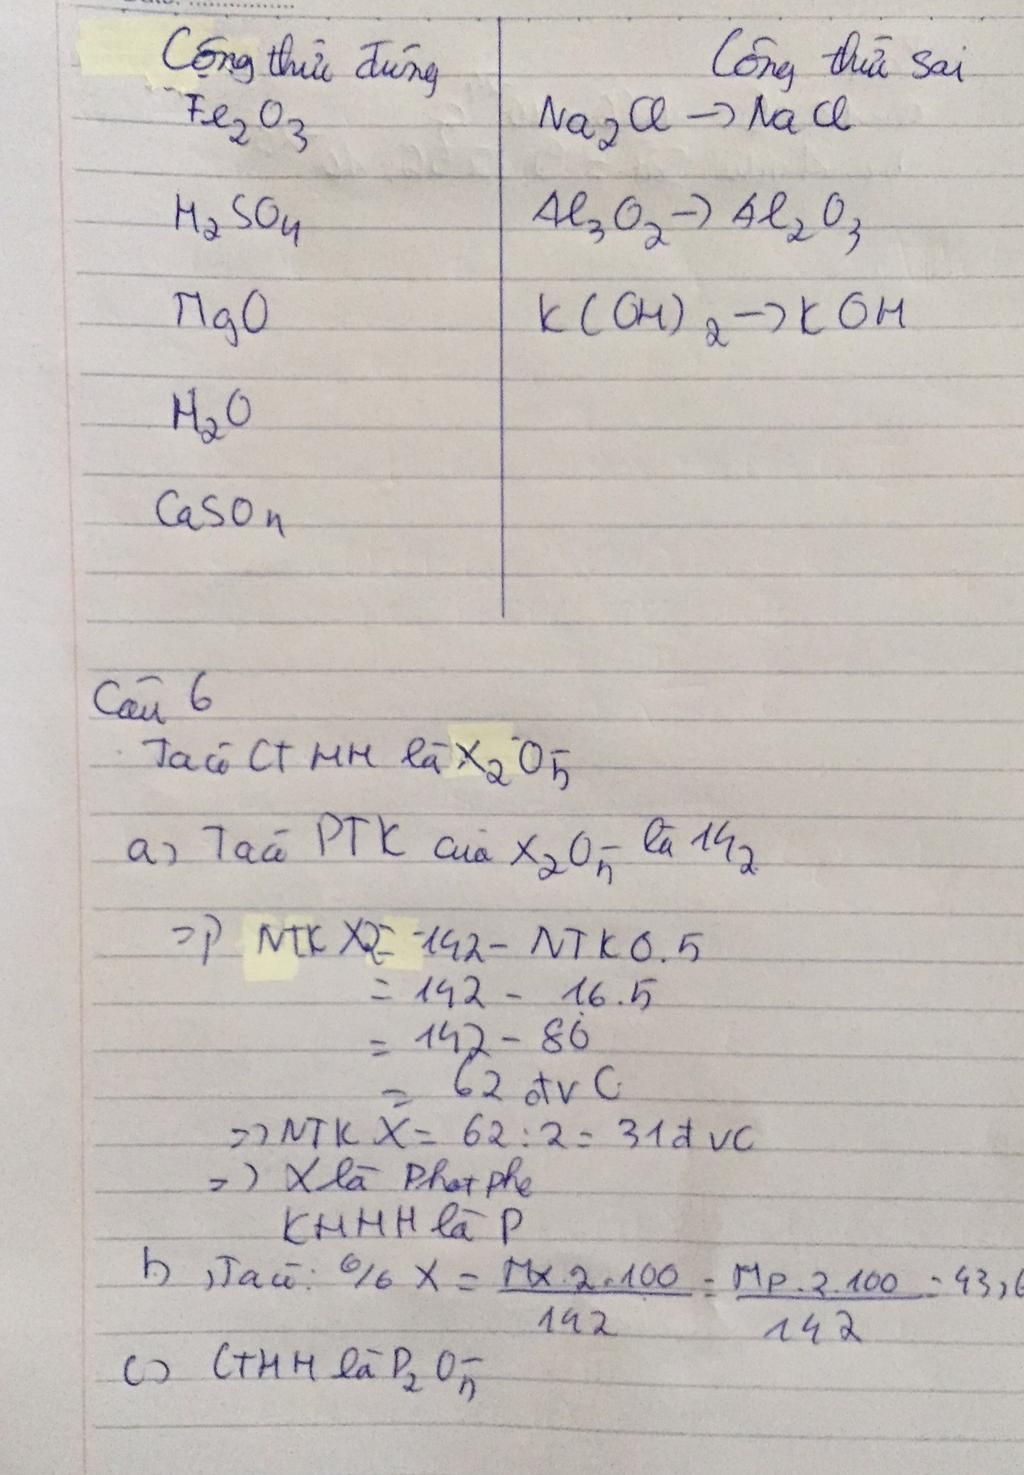 Công thức đúng Công thức sai
Fe2O3 Na2Cl → NaCl
H2SO4 Al3O2 → Al2O3
MgO K(OH)2 → KOH
H2O
CaSO4
Câu 6
Ta có CTHH là X2O5
a) Ta có PTK của X2O5 là 142
=> NTK X2 = 142 - NTK O.5
= 142 - 16.5
= 142 - 80
= 62 đvC
=> NTK X = 62 : 2 = 31 đvC
=> X là Photpho
KHHH là P
b) Ta có: % X = MX.2.100 / 142 = MP.2.100 / 142 = 43,6
c) CTHH là P2O5